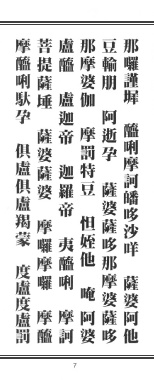 那囉謹墀 醯唎摩訶皤哆沙咩 薩婆阿他
豆輸朋 阿逝孕 薩婆薩哆那摩婆薩哆
那摩婆伽 摩罰特豆 怛姪他 唵 阿婆
盧醯 盧迦帝 迦羅帝 夷醯唎 摩訶
菩提薩埵 薩婆薩婆 摩囉摩囉 摩醯
摩醯唎馱孕 俱盧俱盧羯蒙 度盧度盧罰
7